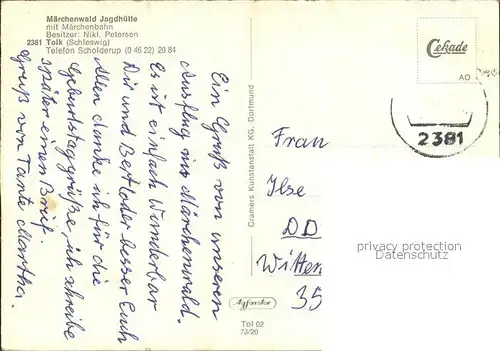 Märchenwald Jagdhütte
mit Märchenbahn
Besitzer: Nikl. Petersen
2381 Tolk (Schleswig)
Telefon Scholderup (0 46 22) 20 84
Ein Gruß von unseren
Ausflug ins Märchenwald.
Es ist einfach Wunderbar
Dir und Bert oder besser Euch
Allen danke ich für die
Geburtstaggrüße, ich schreibe
später einen Brief.
Gruß von Tante Martha.
Cramers Kunstanstalt KG, Dortmund
Cekade
AO
2381
Frau
Ilse
DD
Witten
35
privacy protection
Datenschutz
Agfacolor
Tol 02
73/20